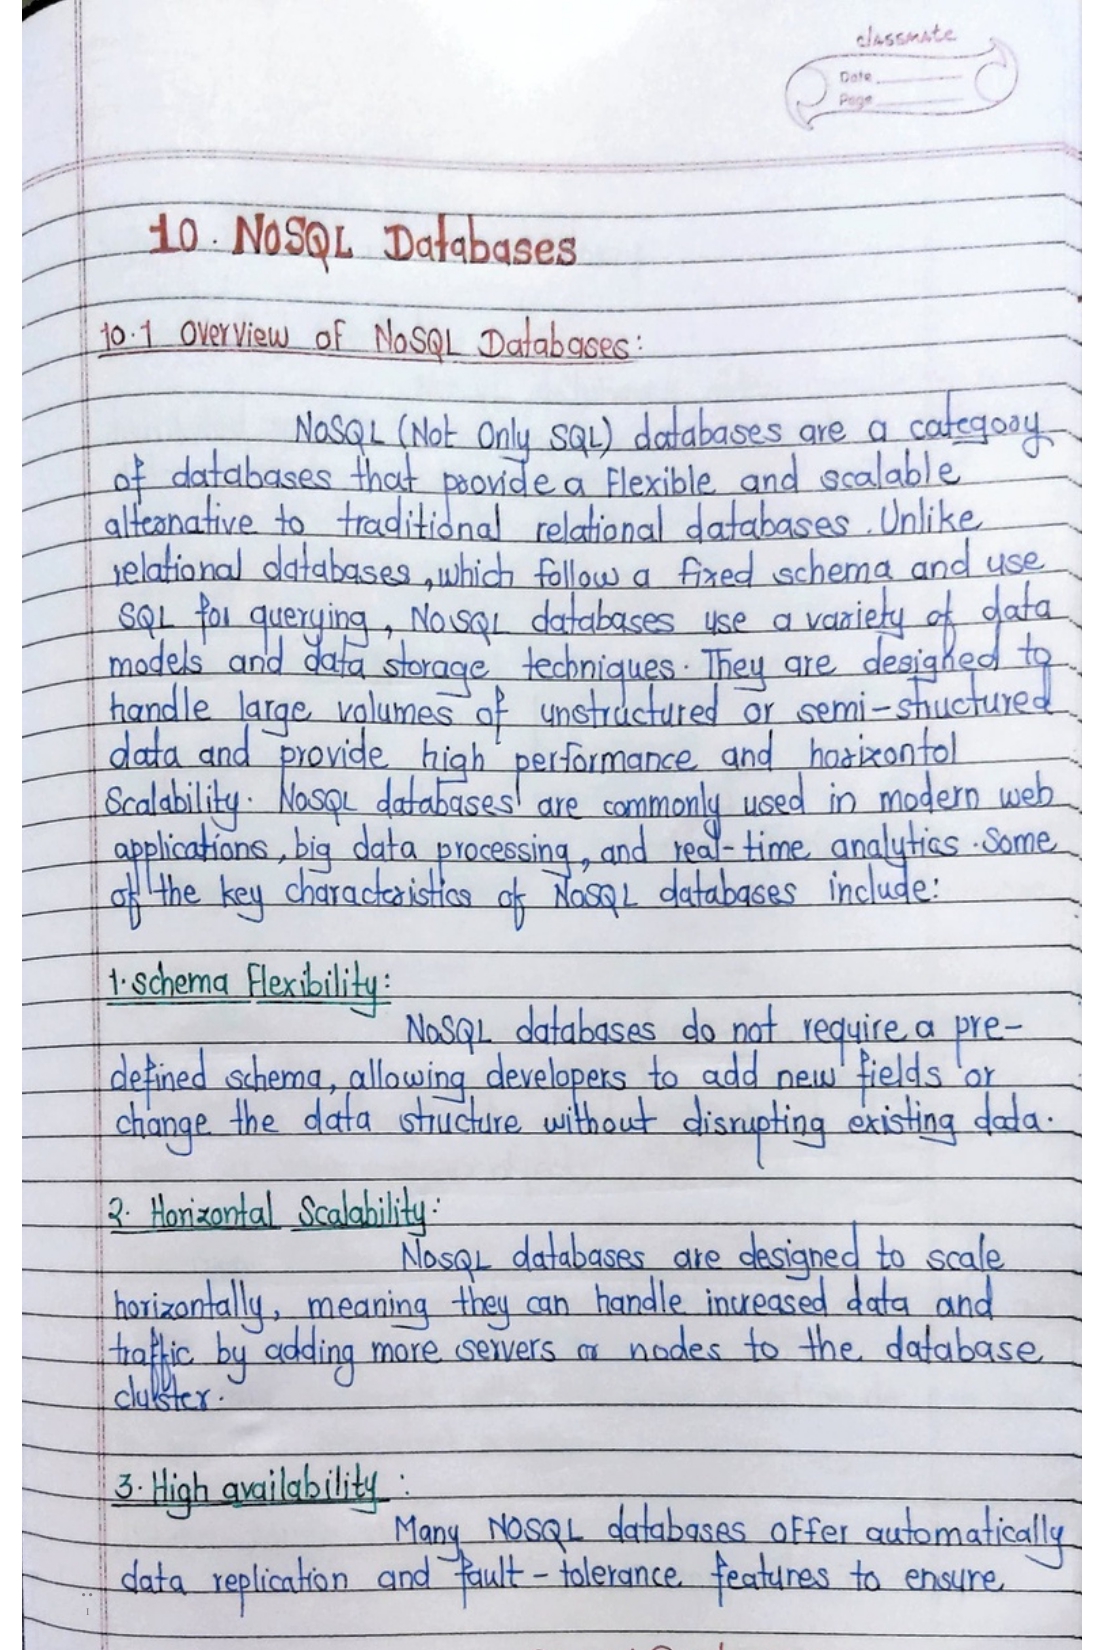 classmate
Date
Page
10. NoSQL Databases
10.1 Overview of NoSQL Databases:
NoSQL (Not Only SQL) databases are a category
of databases that provide a Flexible and scalable
alternative to traditional relational databases. Unlike
relational databases, which follow a fixed schema and use
SQL for querying, NoSQL databases use a variety of data
models and data storage techniques. They are designed to
handle large volumes of unstructured or semi-structured
data and provide high performance and horizontol
Scalability. NoSQL databases are commonly used in modern web
applications, big data processing, and real-time analytics. Some
of the key characteristics of NoSQL databases include:
1. Schema Flexibility:
NoSQL databases do not require a pre-
defined schema, allowing developers to add new fields or
change the data structure without disrupting existing data.
2. Horizontal Scalability:
NosQL databases are designed to scale
horizontally, meaning they can handle increased data and
traffic by adding more servers or nodes to the database
cluster.
3. High availability :
Many NOSQL databases offer automatically
data replication and fault-tolerance features to ensure